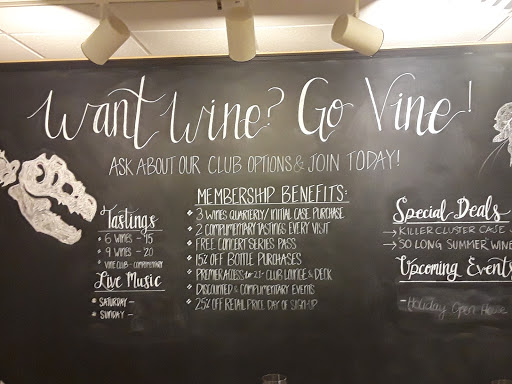 Want Wine? Go Vine!
ASK ABOUT OUR CLUB OPTIONS & JOIN TODAY!
Tastings
6 WINES - 15
9 WINES - 20
VINE CLUB - COMPLIMENTARY
Live Music
SATURDAY -
SUNDAY -
MEMBERSHIP BENEFITS:
3 WINES QUARTERLY/ INITIAL CASE PURCHASE
2 COMPLIMENTARY TASTING EVERY VISIT
FREE CONCERT SERIES PASS
15% OFF BOTTLE PURCHASES
PREMIER ACCESS to 21+ CLUB LOUNGE & DECK
DISCOUNTED & COMPLIMENTARY EVENTS
25% OFF RETAIL PRICE DAY OF SIGN-UP
Special Deals
→ KILLER CLUSTER CASE
→ SO LONG SUMMER WINE
Upcoming Events
- Holiday Open House